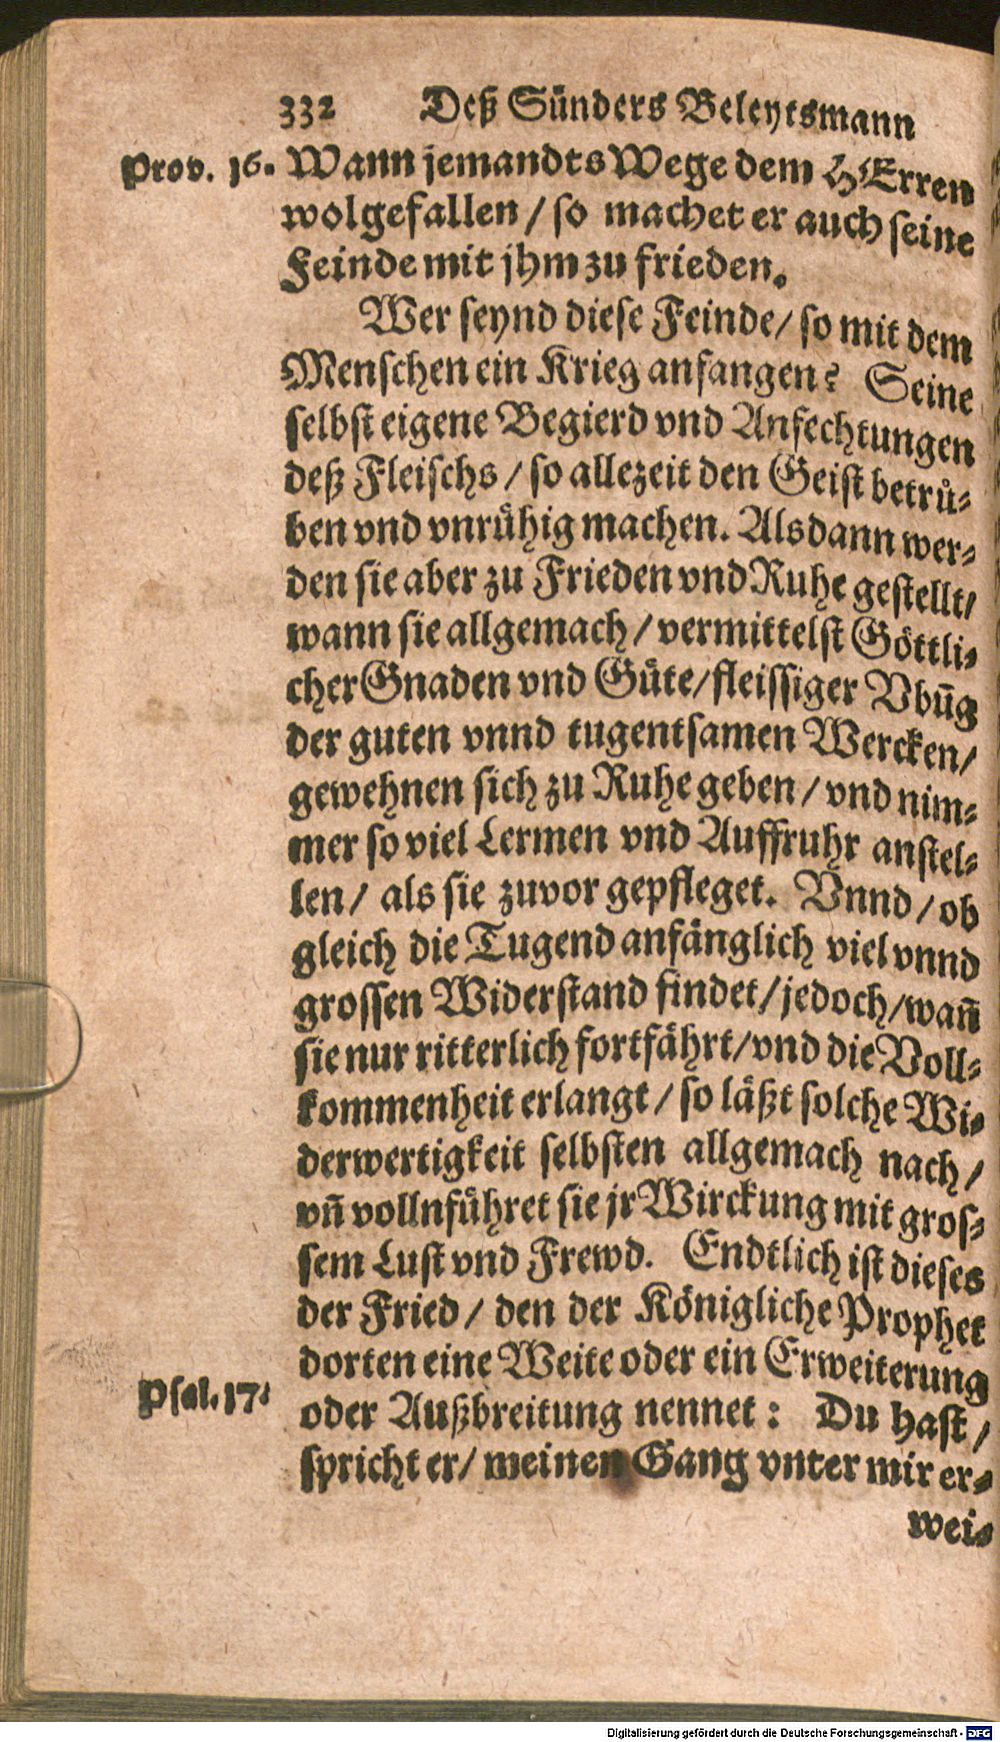 332 Deß Sünders Beleytsmann
Prov. 16. Wann jemandts Wege dem HErren
wolgefallen / so machet er auch seine
Feinde mit jhm zu frieden.
Wer seynd diese Feinde / so mit dem
Menschen ein Krieg anfangen? Seine
selbst eigene Begierd vnd Anfechtungen
deß Fleischs / so allezeit den Geist betrů-
ben vnd vnrůhig machen. Alsdann wer-
den sie aber zu Frieden vnd Ruhe gestellt /
wann sie allgemach / vermittelst Göttli-
cher Gnaden vnd Gůte / fleissiger Vbūg
der guten vnnd tugentsamen Wercken /
gewehnen sich zu Ruhe geben / vnd nim-
mer so viel Lermen vnd Auffruhr anstel-
len / als sie zuvor gepfleget. Vnnd / ob
gleich die Tugend anfänglich viel vnnd
grossen Widerstand findet / jedoch / wañ
sie nur ritterlich fortfährt / vnd die Voll-
kommenheit erlangt / so läßt solche Wi-
derwertigkeit selbsten allgemach nach /
vñ vollnführet sie jr Wirckung mit gros-
sem Lust vnd Frewd. Endtlich ist dieses
der Fried / den der Königliche Prophet
dorten eine Weite oder ein Erweiterung
Psal. 17. oder Außbreitung nennet: Du hast /
spricht er / meinen Gang vnter mir er-
wei-
Digitalisierung gefördert durch die Deutsche Forschungsgemeinschaft - DFG